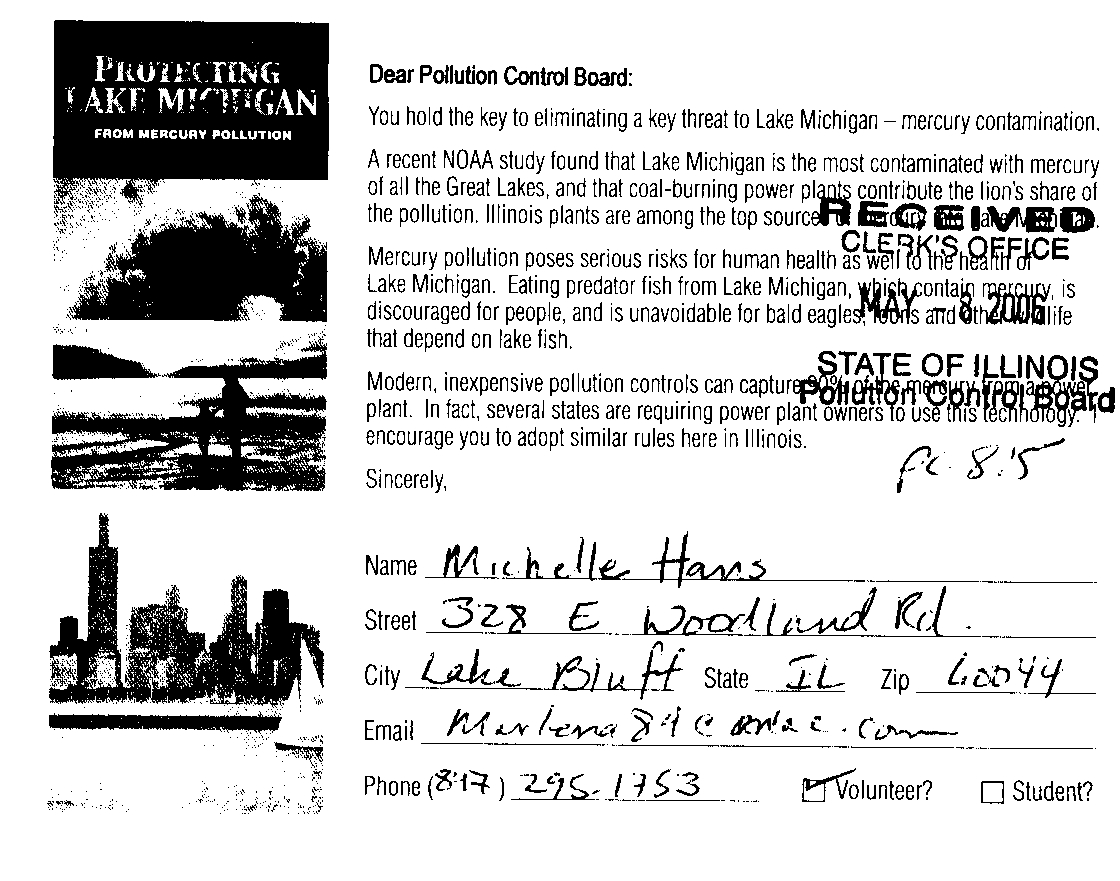 PROTECTING
LAKE MICHIGAN
FROM MERCURY POLLUTION
Dear Pollution Control Board:
You hold the key to eliminating a key threat to Lake Michigan – mercury contamination.
A recent NOAA study found that Lake Michigan is the most contaminated with mercury
of all the Great Lakes, and that coal-burning power plants contribute the lion's share of
the pollution. Illinois plants are among the top source of mercury into Lake Michigan.
RECEIVED
CLERK'S OFFICE
MAY - 8 2006
STATE OF ILLINOIS
Pollution Control Board
Mercury pollution poses serious risks for human health as well to the health of
Lake Michigan. Eating predator fish from Lake Michigan, which contain mercury, is
discouraged for people, and is unavoidable for bald eagles, loons and other wildlife
that depend on lake fish.
Modern, inexpensive pollution controls can capture 90% of the mercury from a power
plant. In fact, several states are requiring power plant owners to use this technology. I
encourage you to adopt similar rules here in Illinois.
Sincerely,
Name Michelle Hans
Street 328 E Woodland Rd.
City Lake Bluff State IL Zip 60044
Email
Phone (847) 295-1753 Volunteer? Student?